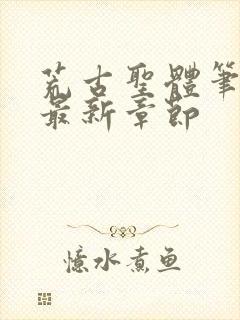 荒古聖體筆
最新章節
憶水煮鱼